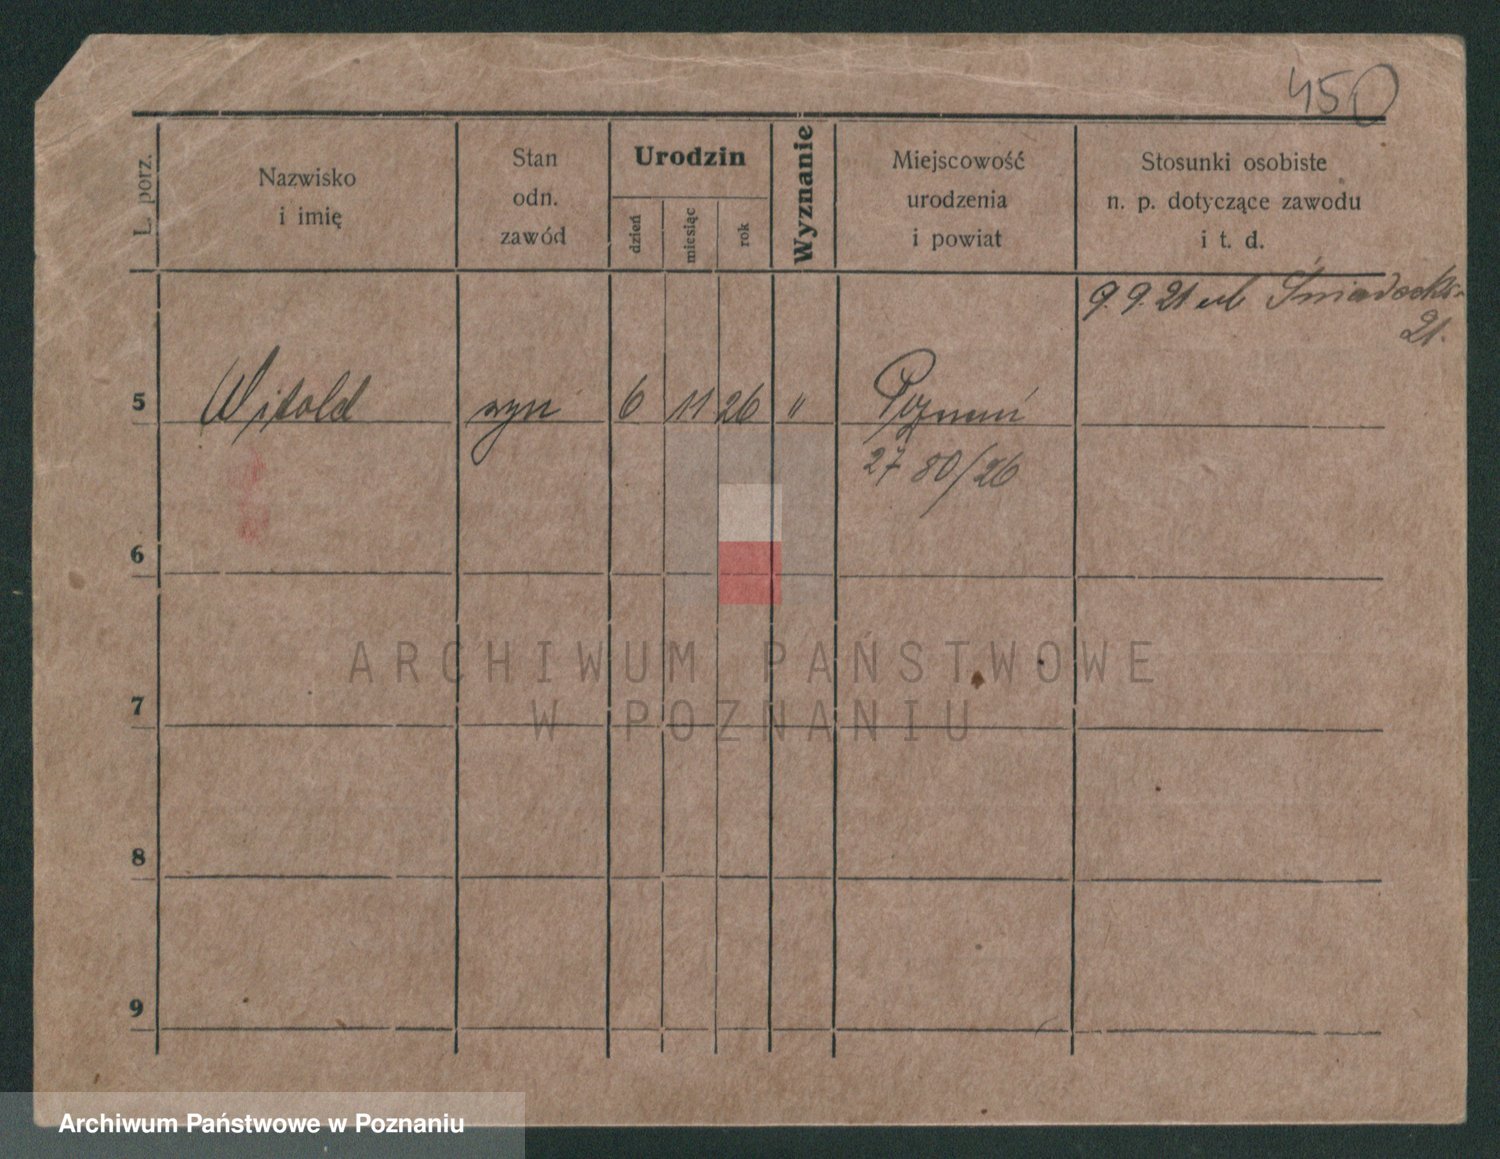 450
L. porz.
Nazwisko
i imię
Stan
odn.
zawód
Urodzin
dzień
miesiąc
rok
Wyznanie
Miejscowość
urodzenia
i powiat
Stosunki osobiste
n. p. dotyczące zawodu
i t. d.
9. 9. 21 ul. Śniadeckich
21.
5 Witold syn 6 11 26 " Poznań
2780/26
6
7
8
9
ARCHIWUM PAŃSTWOWE
W POZNANIU
Archiwum Państwowe w Poznaniu